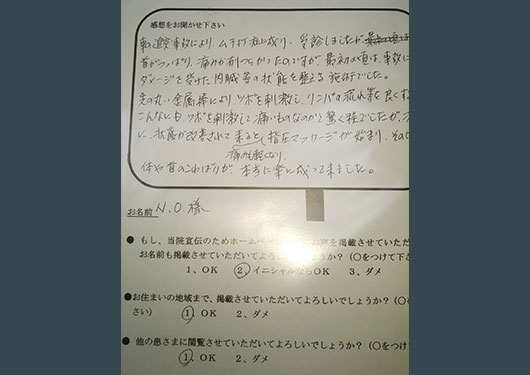 感想をお聞かせ下さい
車の追突事故により、ムチ打ち症に成り、受診しましたが
首がつっぱり、痛みが有りつらかったのですが、最初の頃は、事故に
ダメージを受けた内臓等の状態を整える施術でした。
先の丸い金属棒により、ツボを刺激し、リンパの流れ等を良くす
こんなにも、ツボを刺激して痛いものなのかと驚く程でしたが、
に、状態が改善されて来ると、指圧マッサージが始まり、その
痛みも軽くなり、
体や首のこわばりが、本当に楽に成って来ました。
お名前 N.O. 様
● もし、当院宣伝のためホームペ お声を掲載させていただ
お名前も掲載させていただいてよろ でしょうか？（○をつけて下さ
1、OK ②、イニシャルならOK 3、ダメ
●お住まいの地域まで、掲載させていただいてよろしいでしょうか？（○を
さい） ①、OK 2、ダメ
● 他の患さまに閲覧させていただいてよろしいでしょうか？（○をつけ
①、OK 2、ダメ